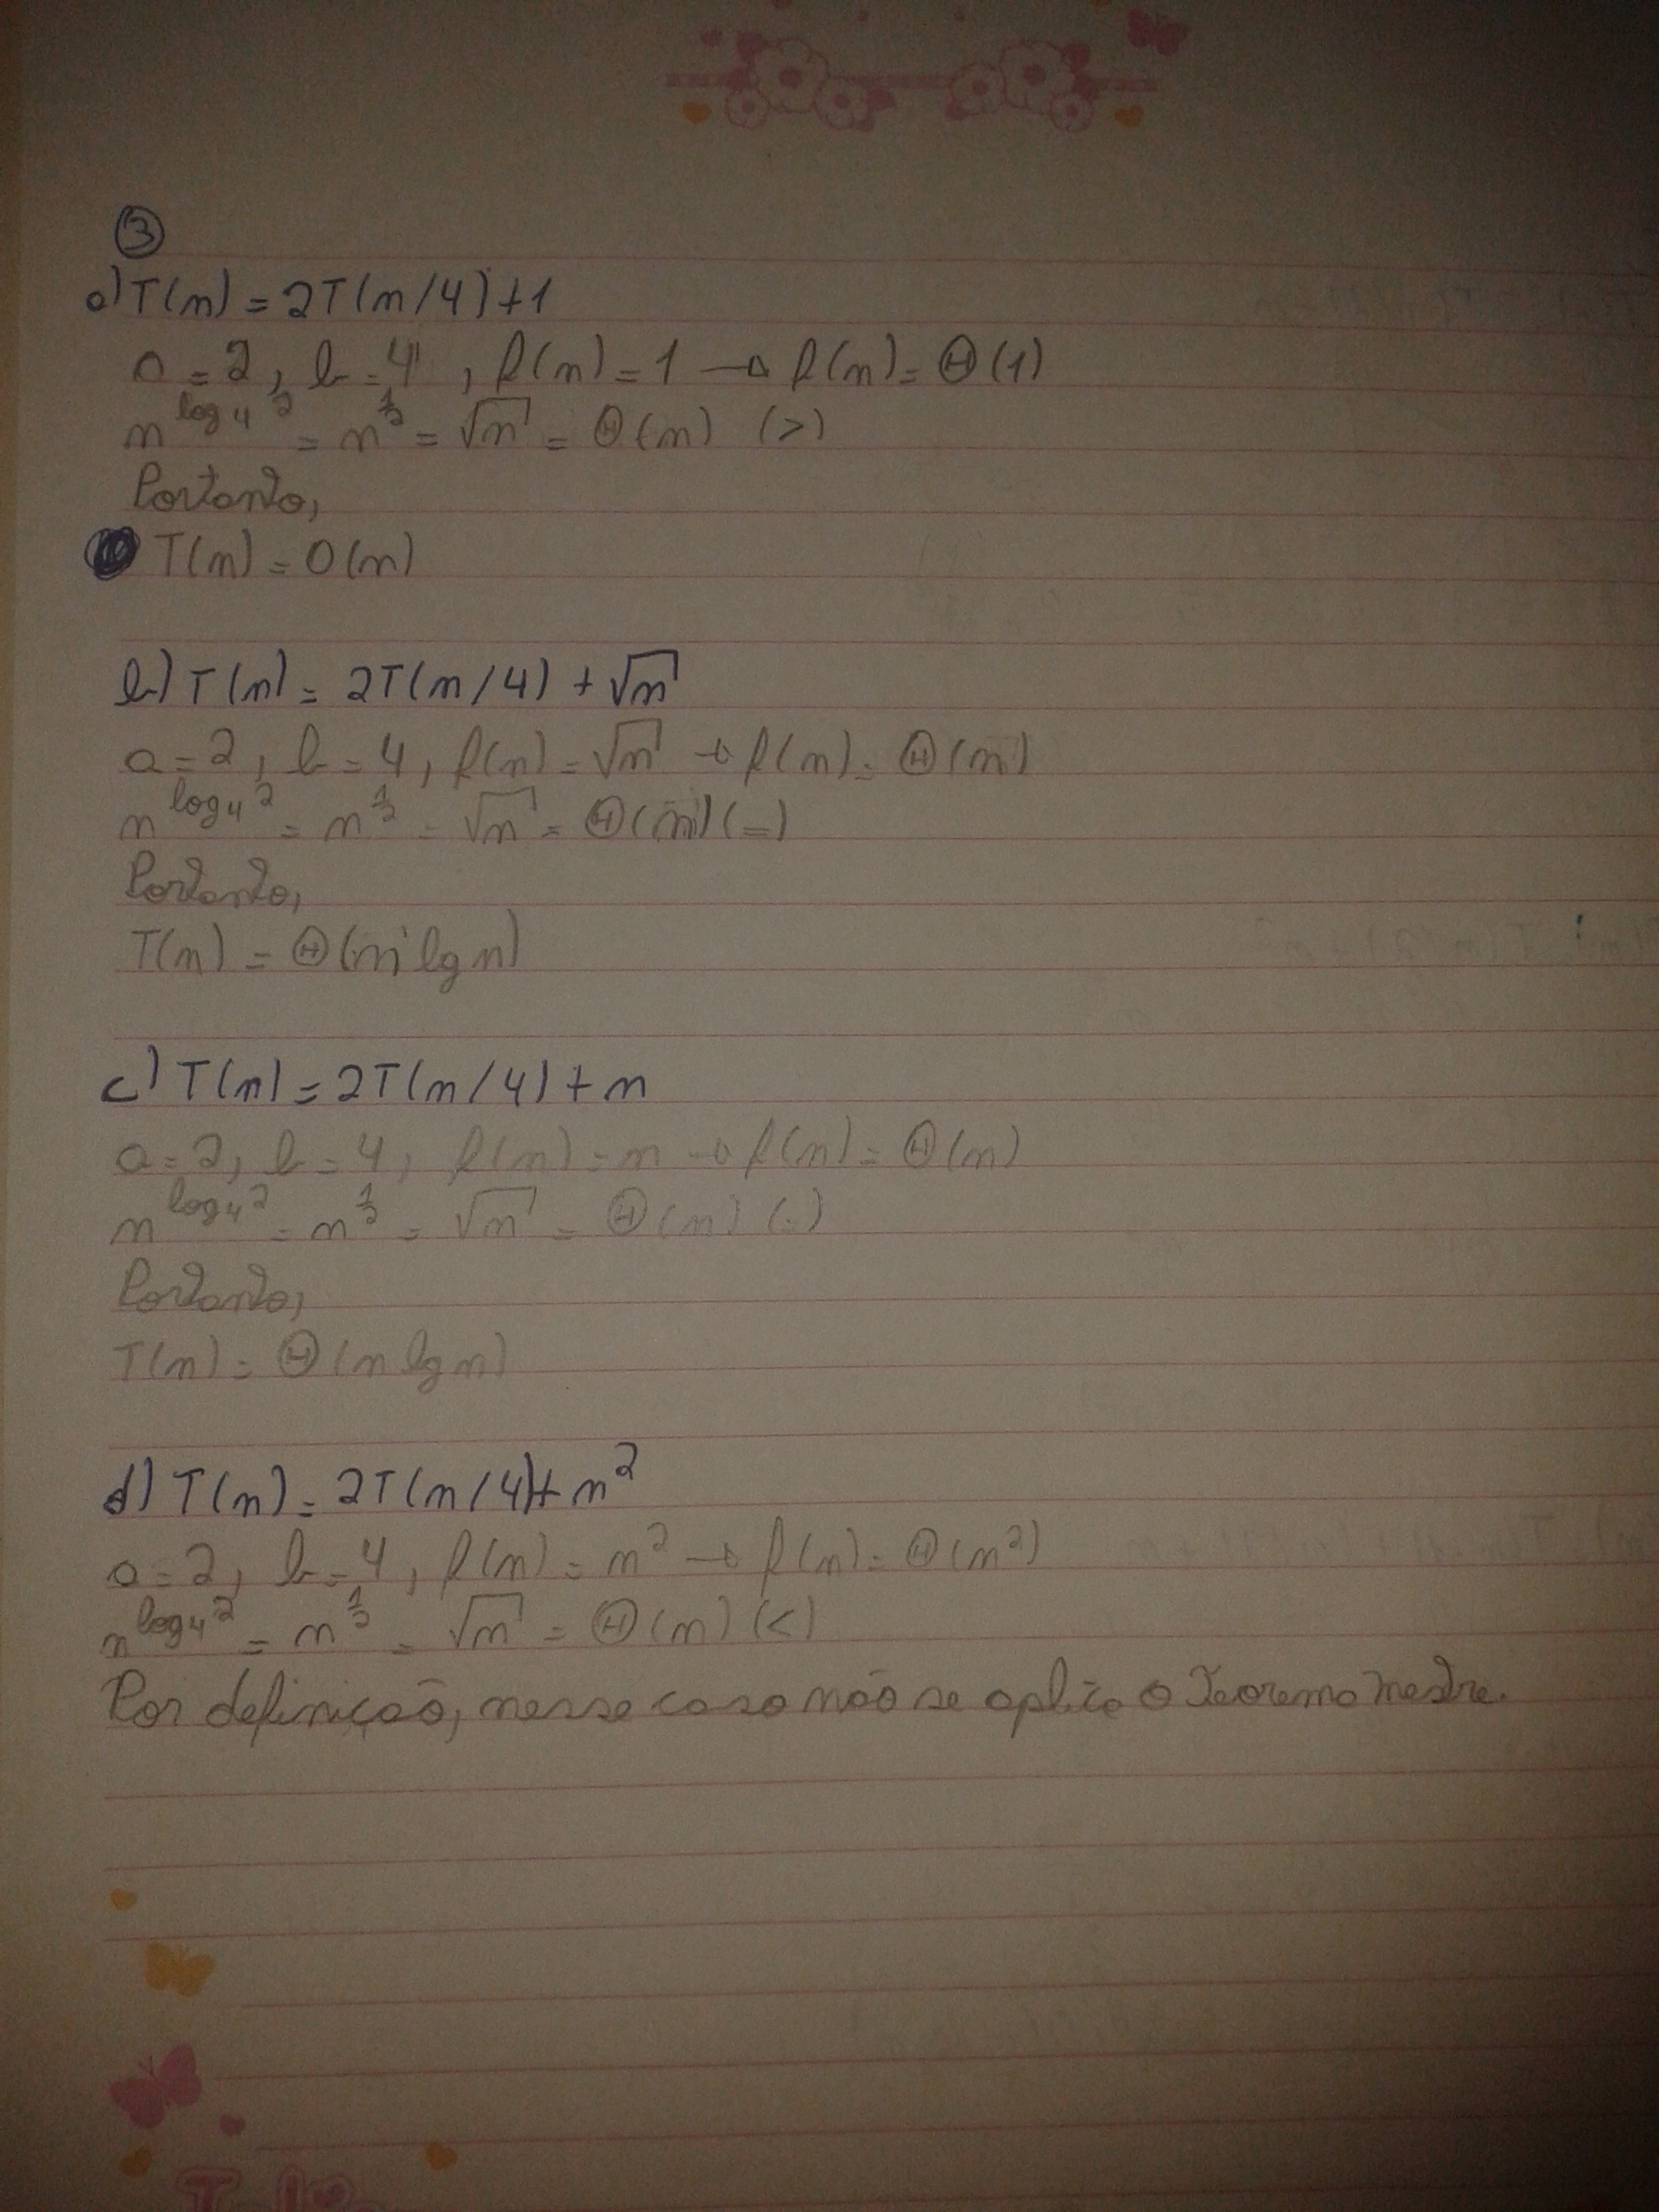 3
a) T(n) = 2T(n/4) + 1
a = 2, b = 4, f(n) = 1 → f(n) = Θ(1)
n^log₄2 = n^½ = √n = Θ(n) (>)
Portanto,
T(n) = O(n)
b) T(n) = 2T(n/4) + √n
a = 2, b = 4, f(n) = √n → f(n) = Θ(n)
n^log₄2 = n^½ = √n = Θ(n) (=)
Portanto,
T(n) = Θ(n lg n)
c) T(n) = 2T(n/4) + n
a = 2, b = 4, f(n) = n → f(n) = Θ(n)
n^log₄2 = n^½ = √n = Θ(n) (=)
Portanto,
T(n) = Θ(n lg n)
d) T(n) = 2T(n/4) + n²
a = 2, b = 4, f(n) = n² → f(n) = Θ(n²)
n^log₄2 = n^½ = √n = Θ(n) (<)
Por definição, nesse caso não se aplica o Teorema mestre.